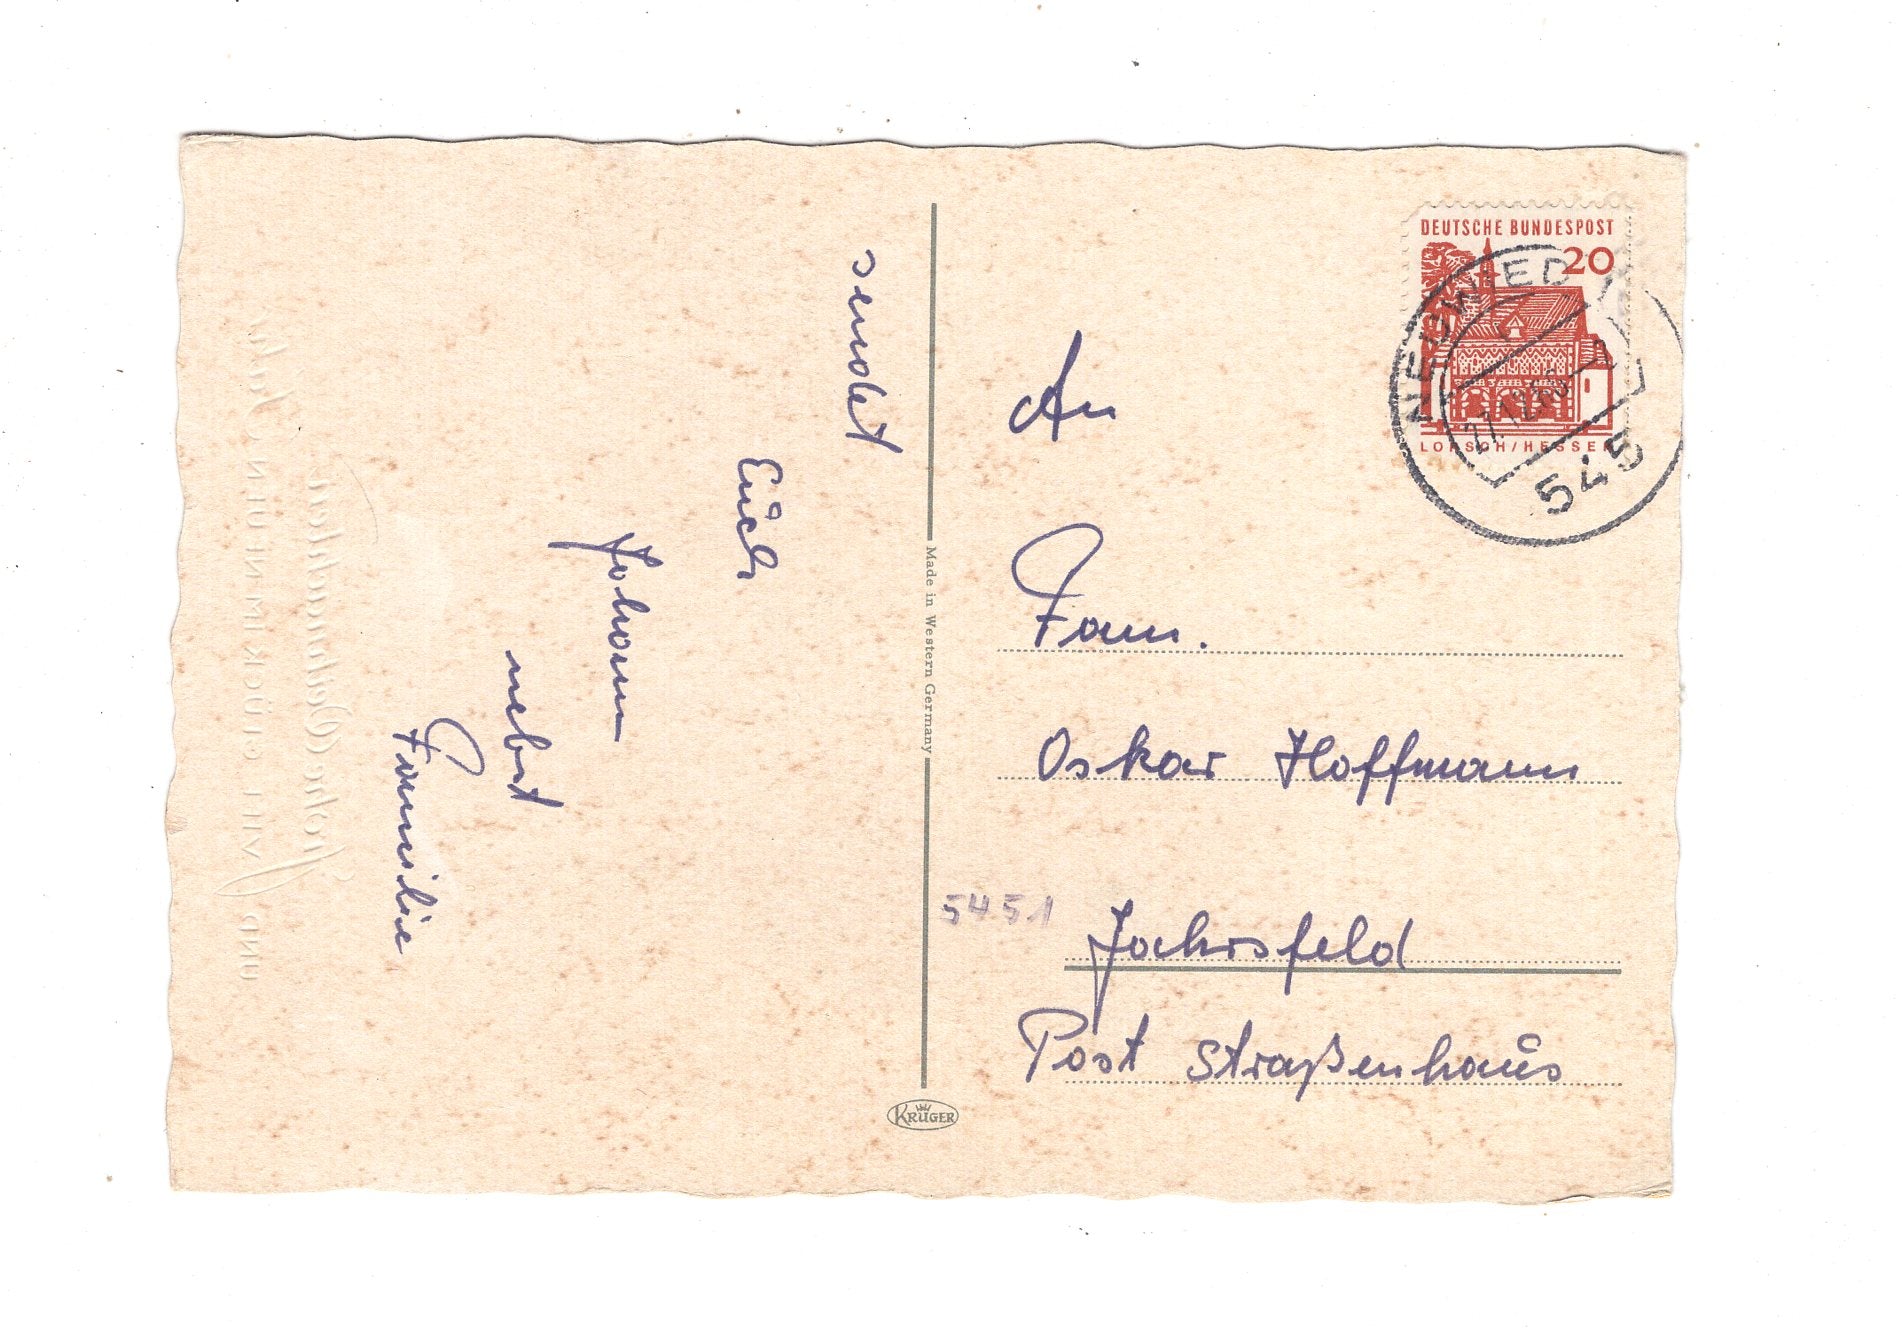 sendet
Euch
Johann
nebst
Familie
Made in Western Germany
KRÜGER
DEUTSCHE BUNDESPOST
20
LORSCH/HESSEN
NEUWIED 1
545
An
Fam.
Oskar Hoffmann
5451
Jahrsfeld
Post Straßenhaus